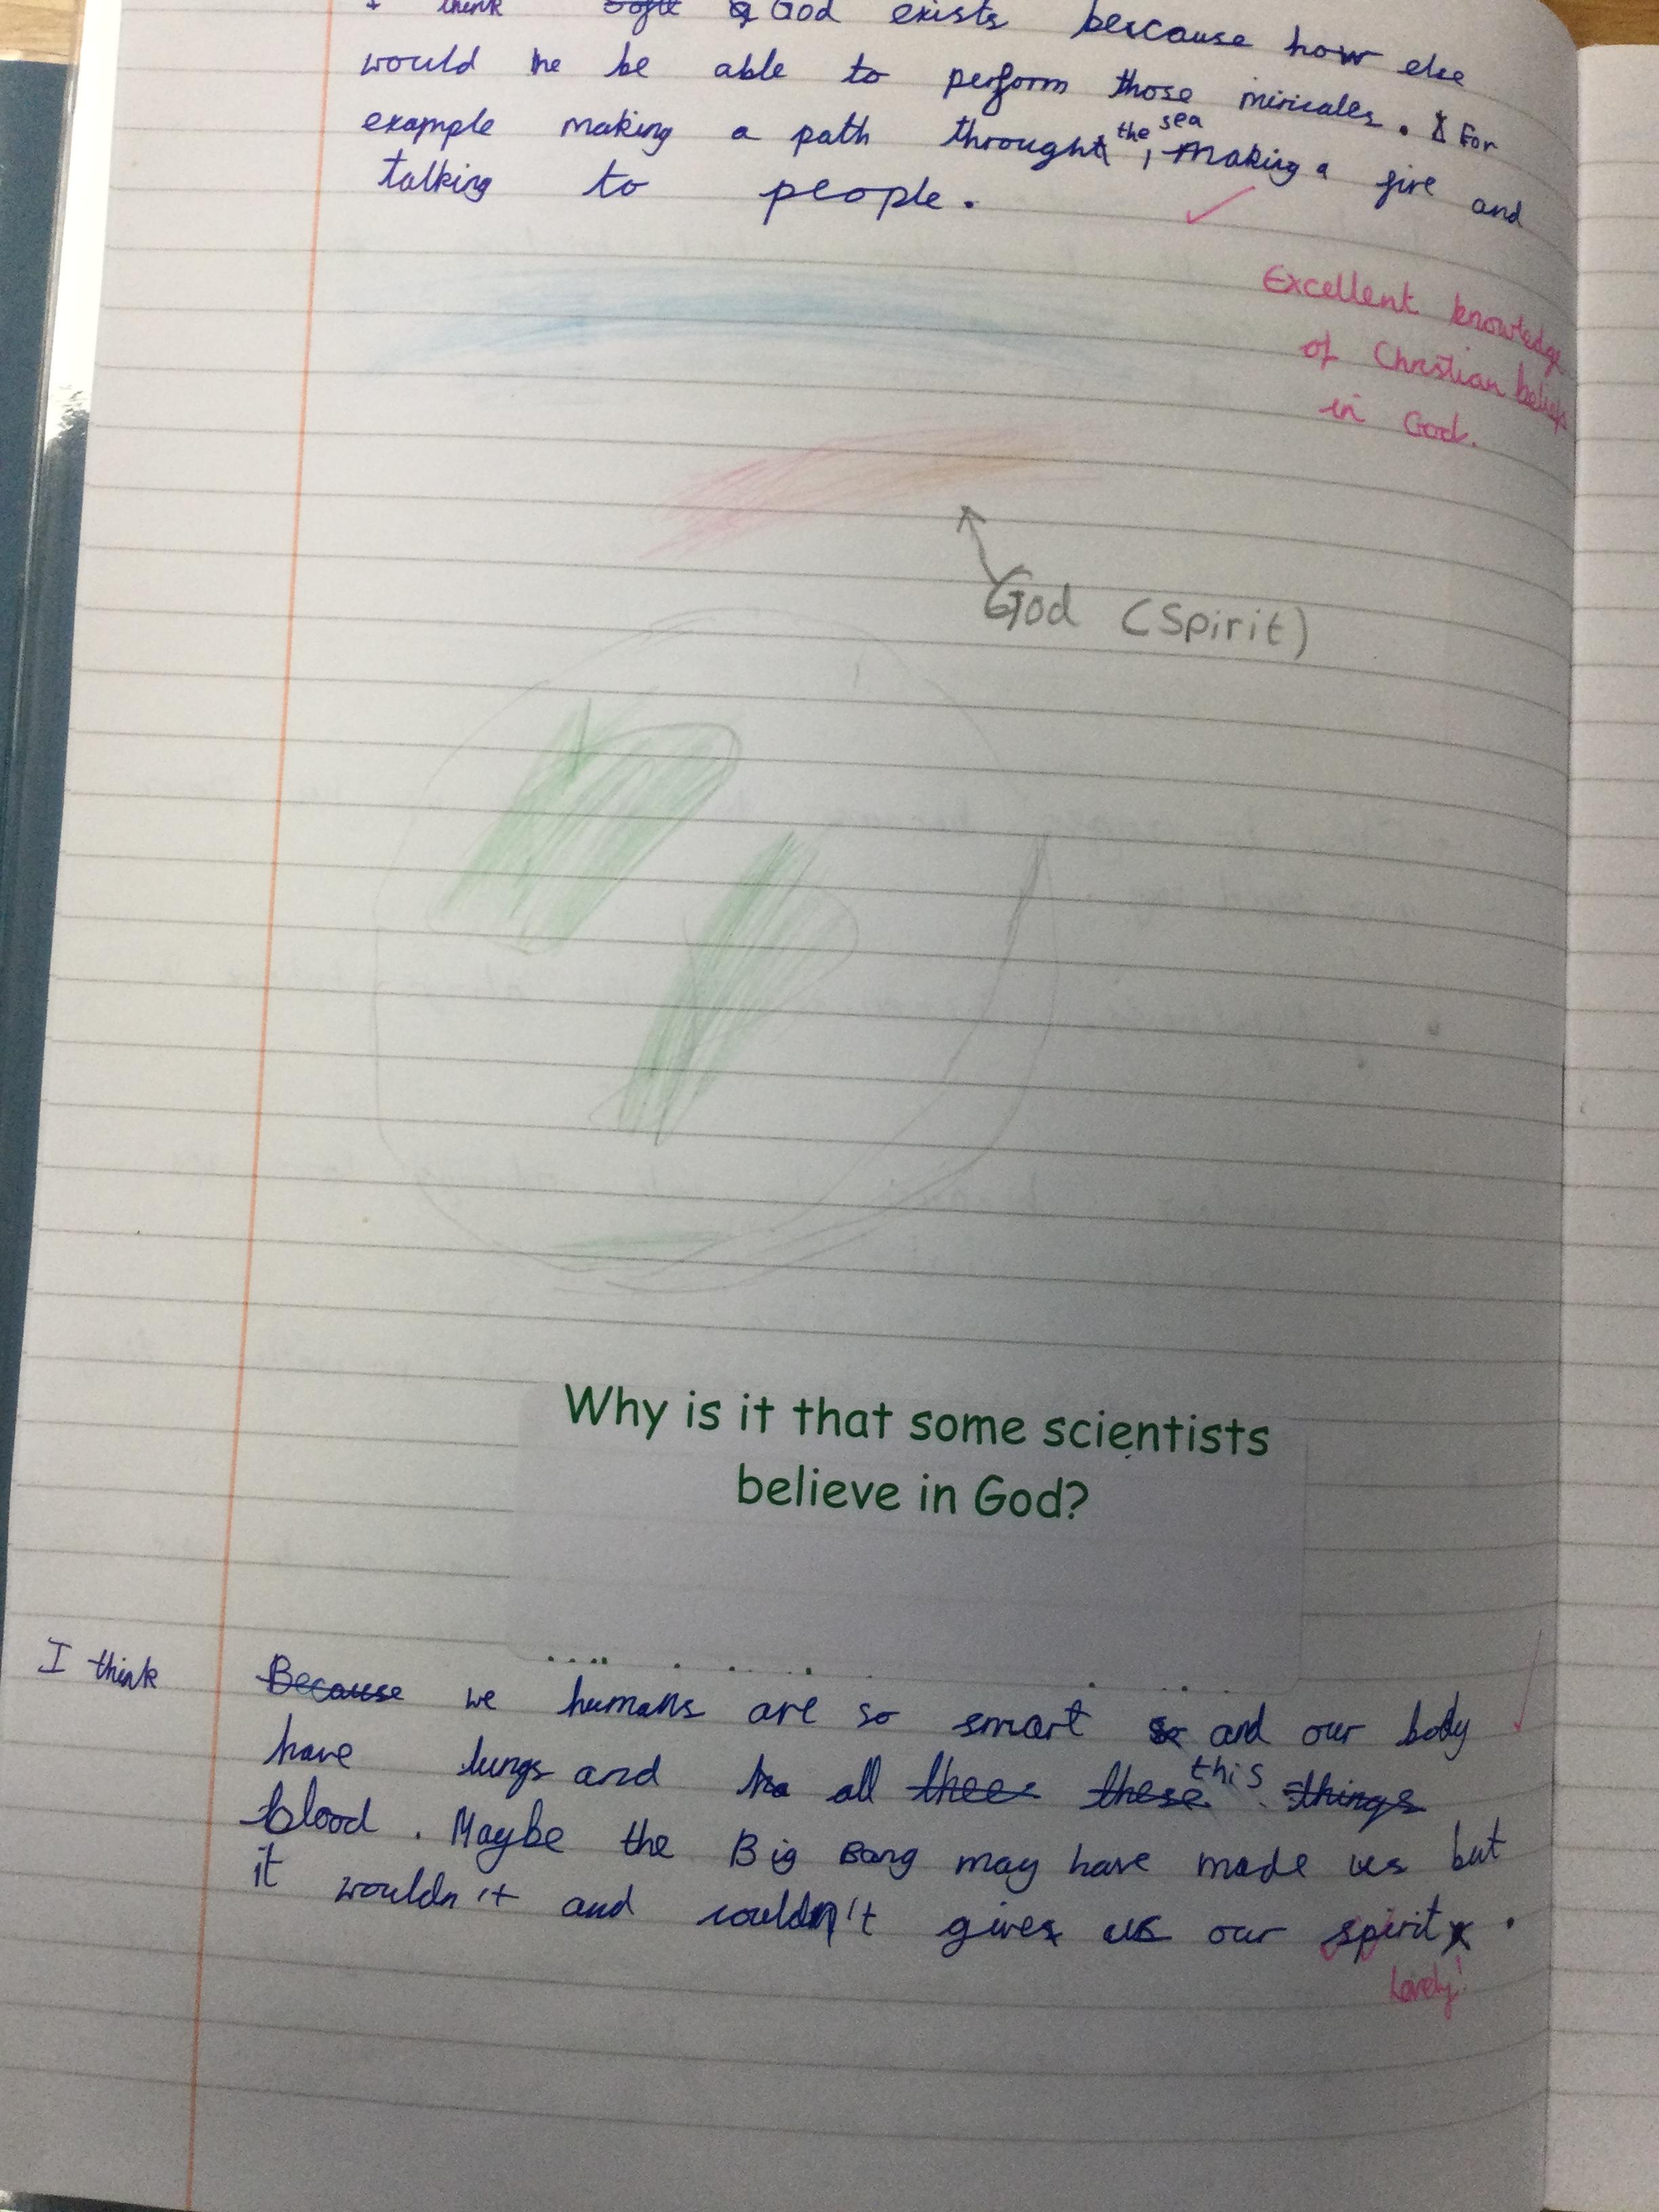 I think God exists bercause how else
would he be able to perform those miricales. For
example making a path throught the sea, making a fire and
talking to people.
Excellent knowledge
of Christian beliefs
in God.
God (Spirit)
Why is it that some scientists
believe in God?
I think Because we humans are so smart so and our body
have lungs and all these these this things
blood. Maybe the Big Bang may have made us but
it wouldn't and couldn't give us our spirit.
Lovely!